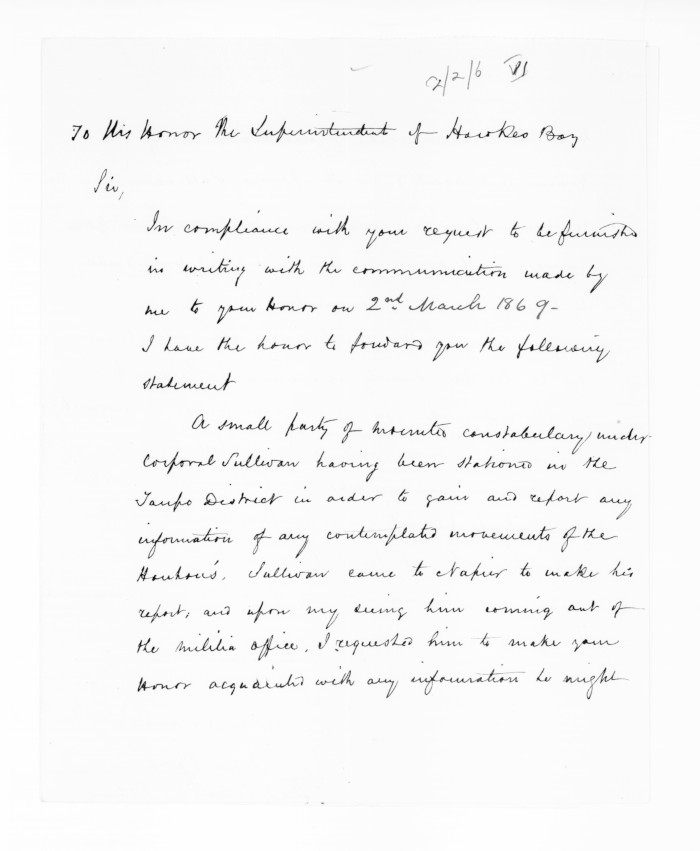 2/2/6 VI
To His Honor The Superintendent of Hawkes Bay
Sir,
In compliance with your request to be furnished
in writing with the communication made by
me to your Honor on 2nd March 1869 -
I have the honor to forward you the following
statement
A small party of mounted constabulary under
Corporal Sullivan having been stationed in the
Taupo District in order to gain and report any
information of any contemplated movements of the
Hauhau's, Sullivan came to Napier to make his
report, and upon my seeing him coming out of
the militia office, I requested him to make your
Honor acquainted with any information he might